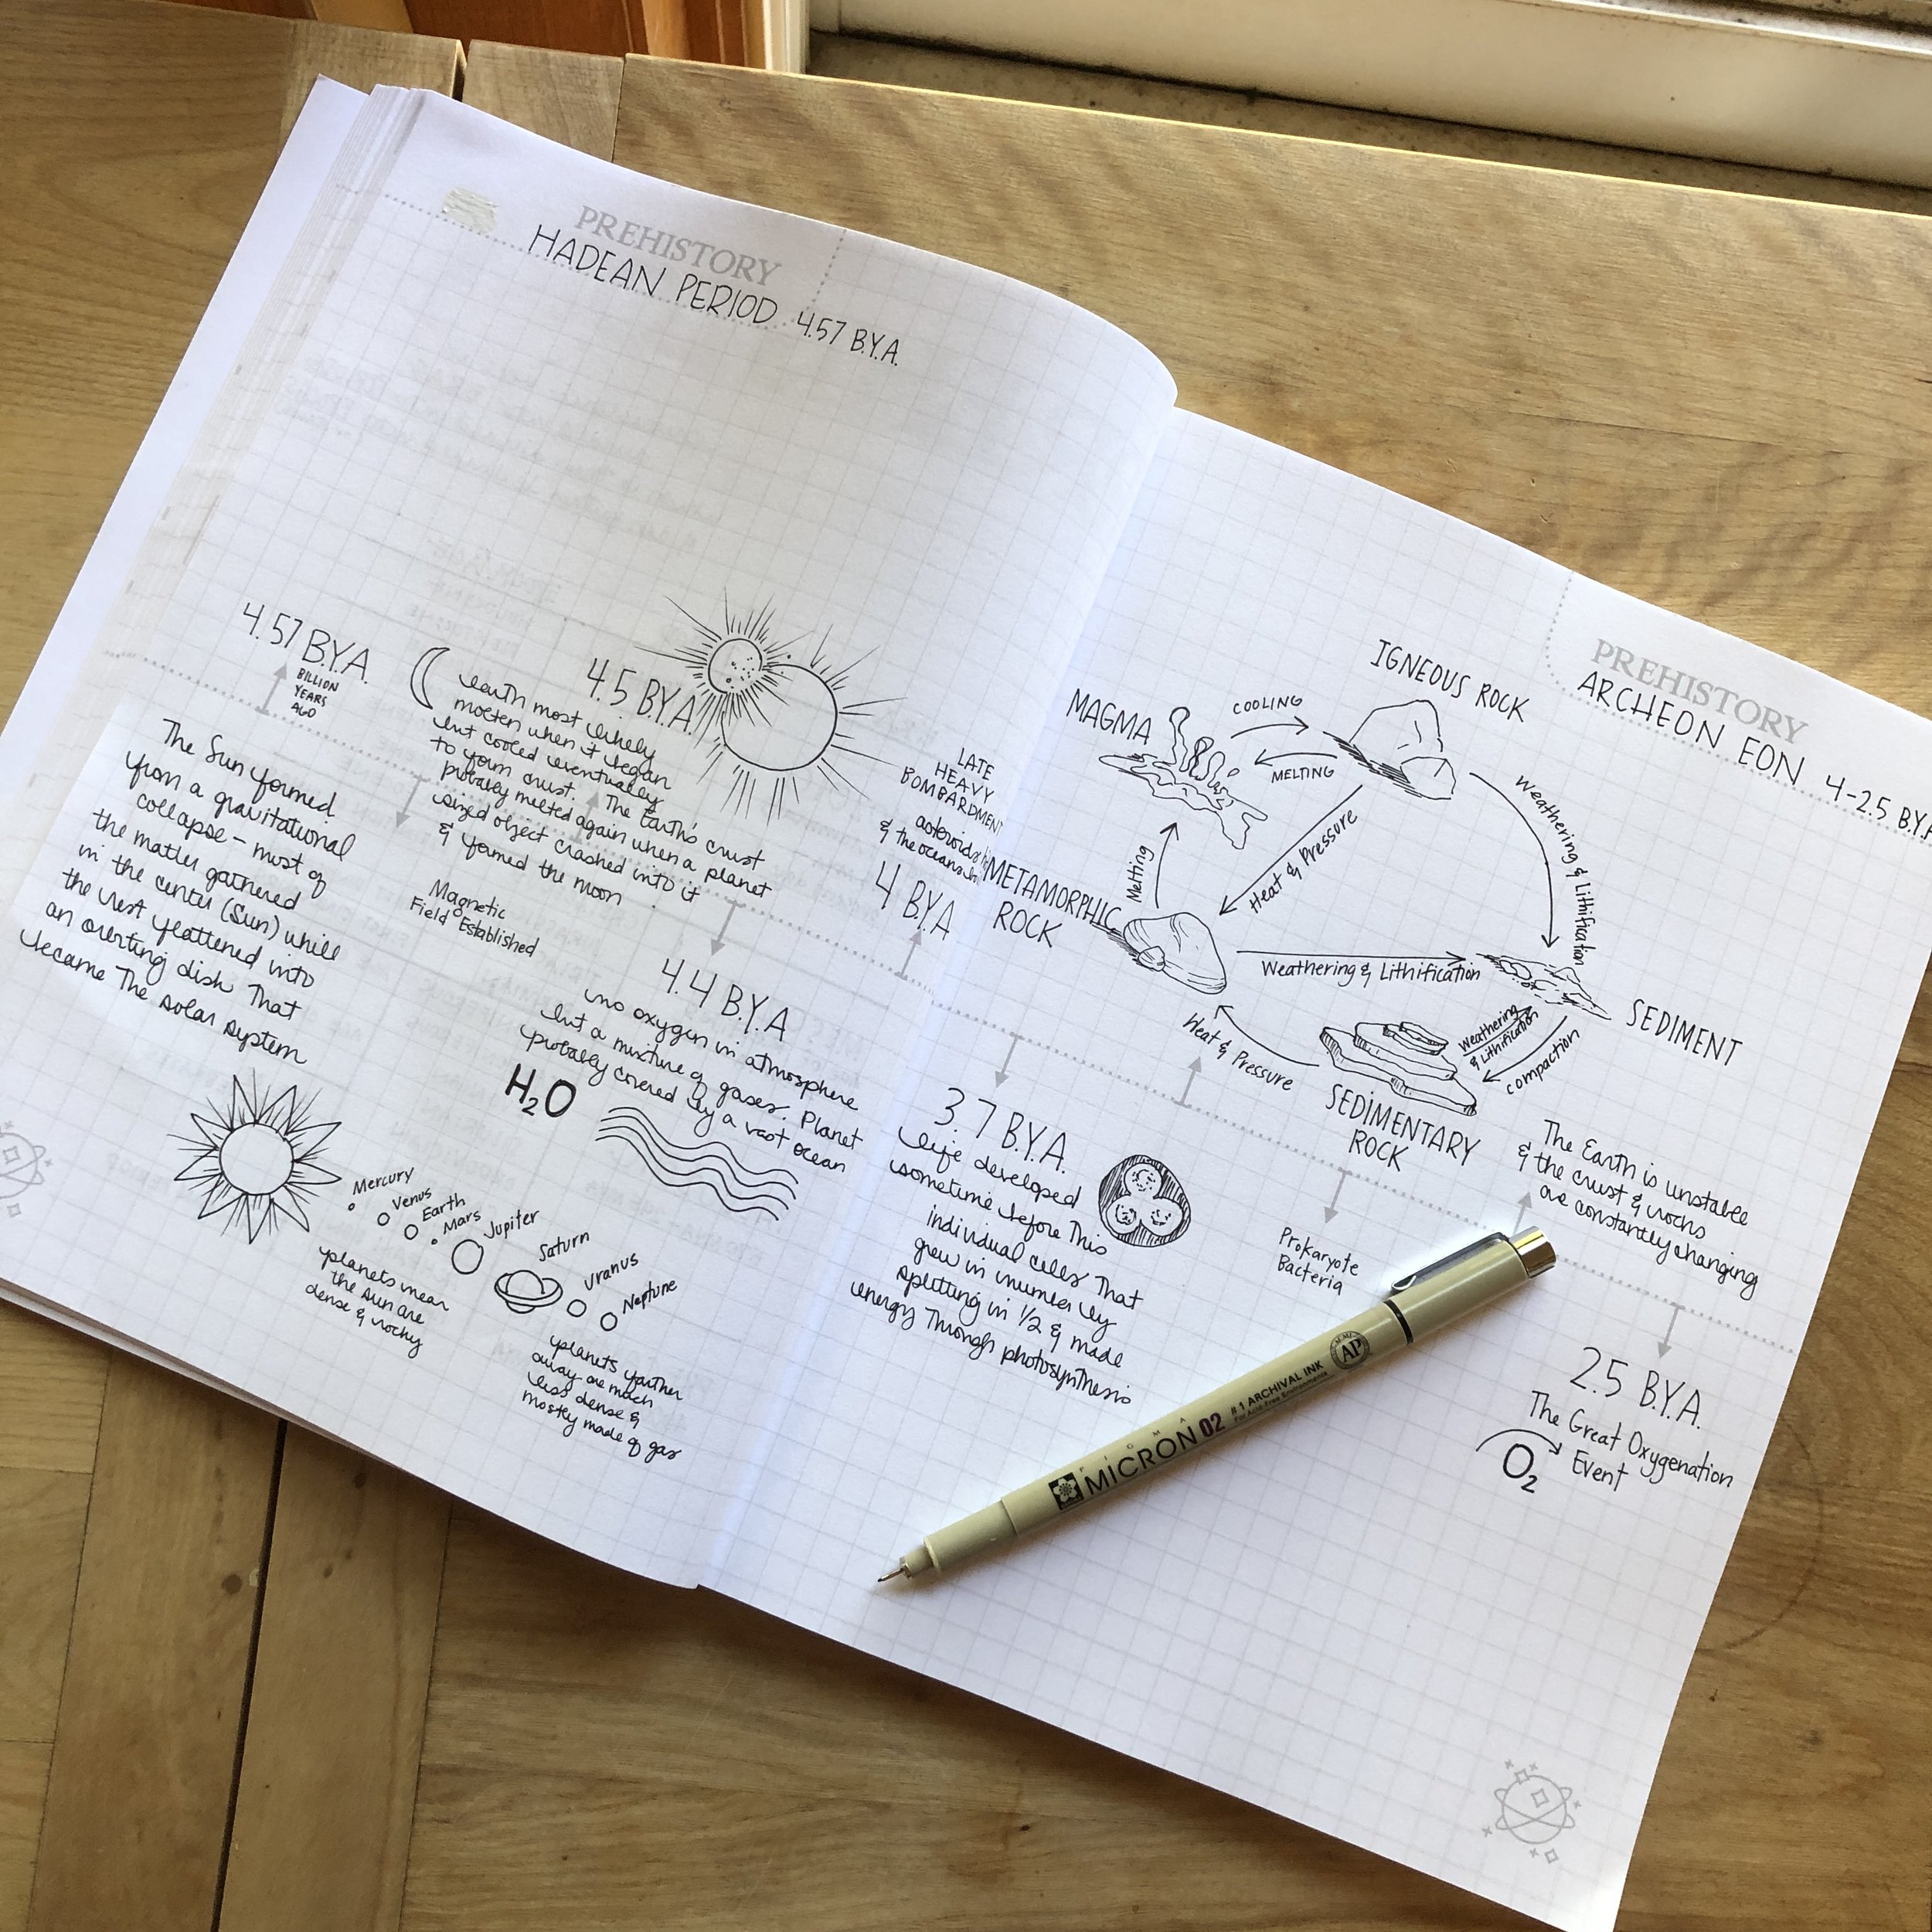 PREHISTORY
HADEAN PERIOD 4.57 B.Y.A.
4.57 B.Y.A.
BILLION
YEARS
AGO
The Sun formed
from a gravitational
collapse – most of
the matter gathered
in the center (Sun) while
the rest flattened into
an orbiting dish That
became The solar system
Mercury
Venus
Earth
Mars
Jupiter
Saturn
Uranus
Neptune
planets near
the sun are
dense & rocky
planets farther
away are much
less dense &
mostly made of gas
4.5 B.Y.A.
Earth most likely
molten when it began
but cooled eventually
to form crust. The Earth's crust
probably melted again when a planet
sized object crashed into it
& formed the moon
Magnetic
Field Established
4.4 B.Y.A
no oxygen in atmosphere
but a mixture of gases. Planet
probably covered by a vast ocean
H2O
LATE
HEAVY
BOMBARDMENT
asteroids
& the oceans
4 B.Y.A
PREHISTORY
ARCHEON EON 4-2.5 B.Y.A
MAGMA
COOLING
MELTING
IGNEOUS ROCK
Weathering & Lithification
Heat & Pressure
Melting
METAMORPHIC
ROCK
Weathering & Lithification
SEDIMENT
Weathering
& Lithification
compaction
Heat & Pressure
SEDIMENTARY
ROCK
3.7 B.Y.A.
life developed
sometime before This
individual cells That
grew in number by
splitting in 1/2 & made
energy Through photosynthesis
Prokaryote
Bacteria
The Earth is unstable
& the crust & rocks
are constantly changing
2.5 B.Y.A.
The Great Oxygenation
Event
O2
PIGMA
MICRON 02 #1 ARCHIVAL INK
For Acid Free Environments
AP